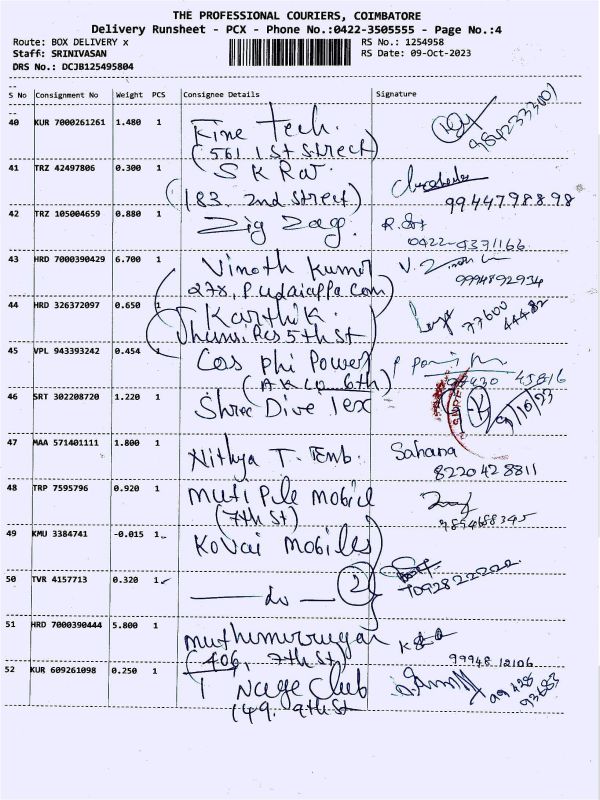 THE PROFESSIONAL COURIERS, COIMBATORE
Delivery Runsheet - PCX - Phone No.:0422-3505555 - Page No.:4
Route: BOX DELIVERY x
RS No.: 1254958
Staff: SRINIVASAN
RS Date: 09-Oct-2023
DRS No.: DCJB125495804
S No Consignment No Weight PCS Consignee Details Signature
40 KUR 7000261261 1.480 1 Kine Tech.
9842333001
(561 1st Street)
41 TRZ 42497806 0.300 1 S K Rav
(183. 2nd Street) 9944798898
42 TRZ 105004659 0.880 1 Zig Zag.
0422-4371166
43 HRD 7000390429 6.700 1 Vinoth Kumar
278, Pudaiappa Com)
9994892934
44 HRD 326372097 0.650 1 Karthik.
77600 44482
5th St
45 VPL 943393242 0.454 1 Cos phi Power
6th) 45816
46 SRT 302208720 1.220 1 Shree Dive Tex
47 MAA 571401111 1.800 1 Nithya T. Emb. Sahana
8220428811
48 TRP 7595796 0.920 1 Mobile
(7th St) 9894688345
49 KMU 3384741 -0.015 1 Kovai Mobiles
50 TVR 4157713 0.320 1 do 2
7092822222
51 HRD 7000390444 5.800 1 Muthumurugan
(406, 7th St)
99948 12106
52 KUR 609261098 0.250 1 Club
(49. 9th St